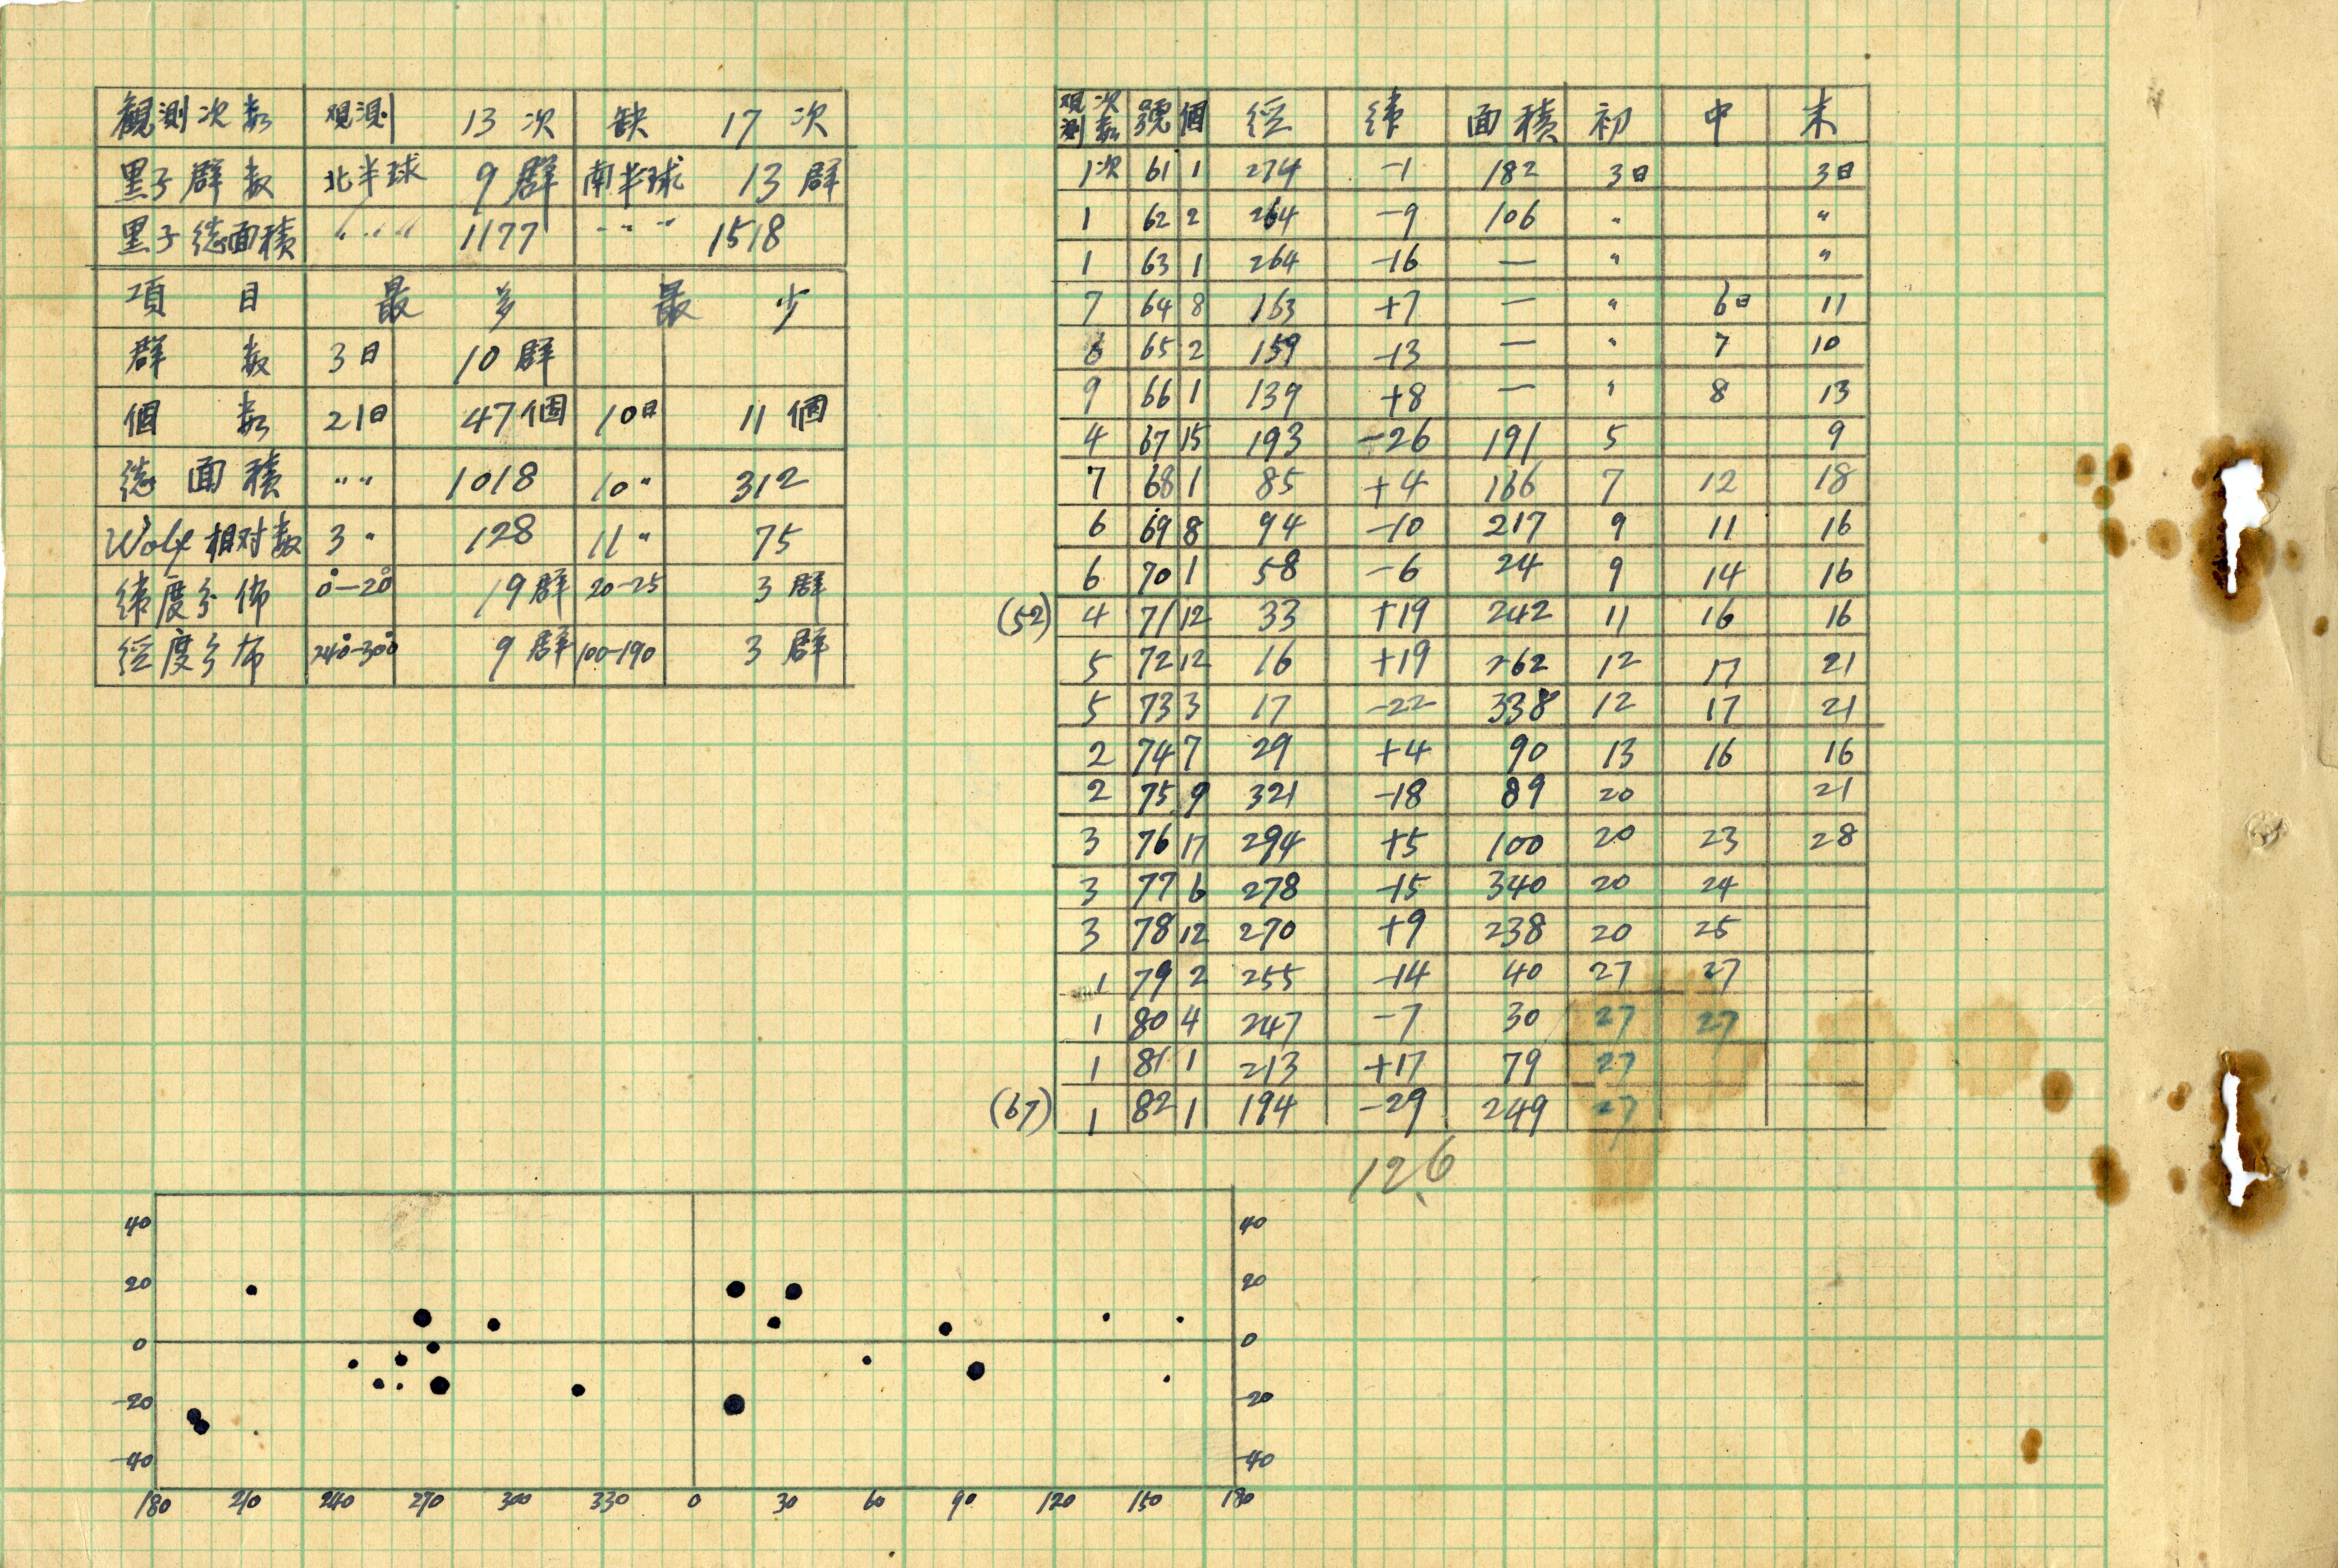 観測次数 观測 13次 缺 17次
黒子群数 北半球 9群 南半球 13群
黒子總面積 〃〃〃 1177 〃〃〃 1518
項目 最多 最少
群数 3日 10群
個数 21日 47個 10日 11個
總面積 〃〃 1018 10〃 312
Wolf相对数 3〃 128 11〃 75
緯度分佈 0°-20° 19群 20-25 3群
經度分布 240°-300° 9群 100-190 3群
观測次数 號 個 經 緯 面積 初 中 末
1次 61 1 274 -1 182 3日 3日
1 62 2 264 -9 106 〃 〃
1 63 1 264 -16 — 〃 〃
7 64 8 163 +7 — 〃 6日 11
6 65 2 159 -13 — 〃 7 10
9 66 1 139 +8 — 〃 8 13
4 67 15 193 -26 191 5 9
7 68 1 85 +4 166 7 12 18
6 69 8 94 -10 217 9 11 16
6 70 1 58 -6 24 9 14 16
(52) 4 71 12 33 +19 242 11 16 16
5 72 12 16 +19 262 12 17 21
5 73 3 17 -22 338 12 17 21
2 74 7 29 +4 90 13 16 16
2 75 9 321 -18 89 20 21
3 76 17 294 +5 100 20 23 28
3 77 6 278 -15 340 20 24
3 78 12 270 +9 238 20 25
1 79 2 255 -14 40 27 27
1 80 4 247 -7 30 27 27
1 81 1 213 +17 79 27
(67) 1 82 1 194 -29 249 27
12.6
40 40
20 20
0 0
-20 -20
-40 -40
180 210 240 270 300 330 0 30 60 90 120 150 180